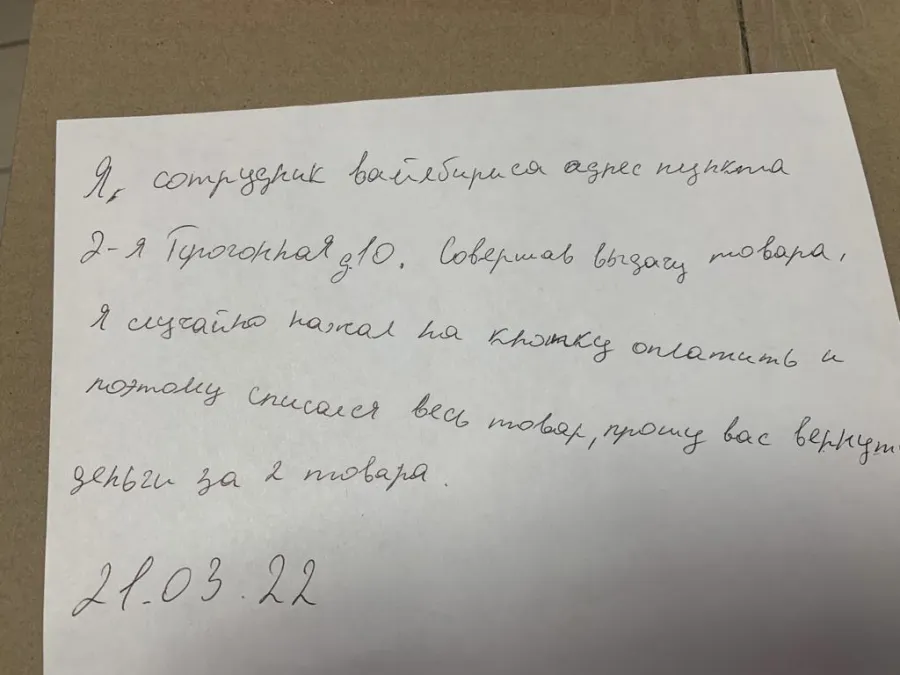 Я, сотрудник вайлбириса адрес пункта
2-я Прогонная д.10. Совершав выдачу товара,
я случайно нажал на кнопку оплатить и
поэтому списался весь товар, прошу вас вернуть
деньги за 2 товара.
21.03.22